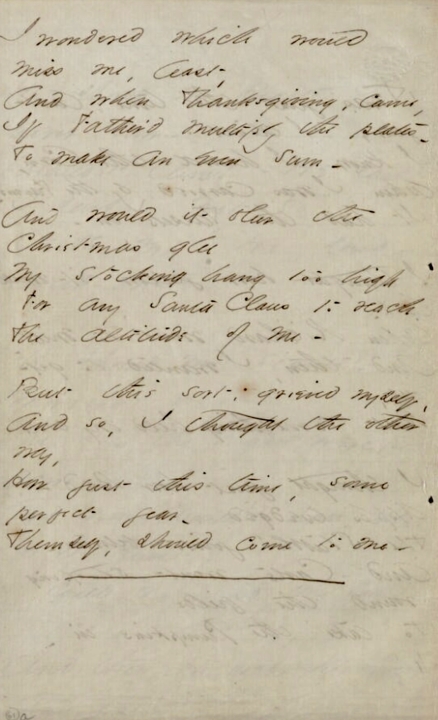 I wondered which would
miss me, least,
And when Thanksgiving, came,
If Father'd multiply the plates -
To make an even Sum -
And would it blur the
Christmas glee
My Stocking hang too high
For any Santa Claus to reach
The altitude of me -
But this sort, grieved myself,
And so, I thought the other
way,
How just this time, some
perfect year -
Themself, should come to me -